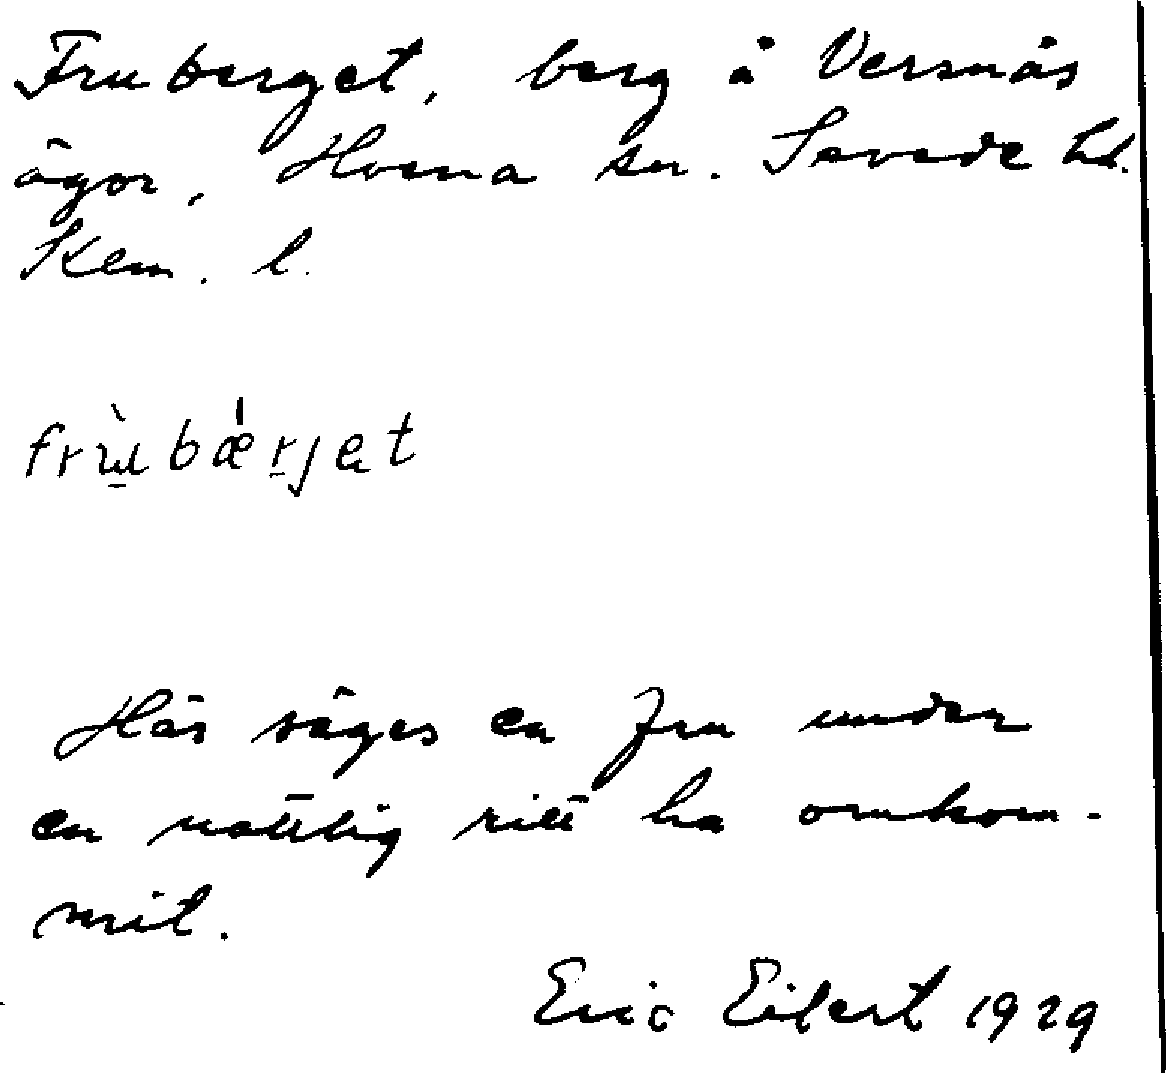 Fruberget, berg å Versnäs
ägor, Hvena sn. Sevede hd.
Kalm. l.
frùbǽrjet
Här säges en fru under
en nattlig ritt ha omkom-
mit.
Eric Eilert 1929